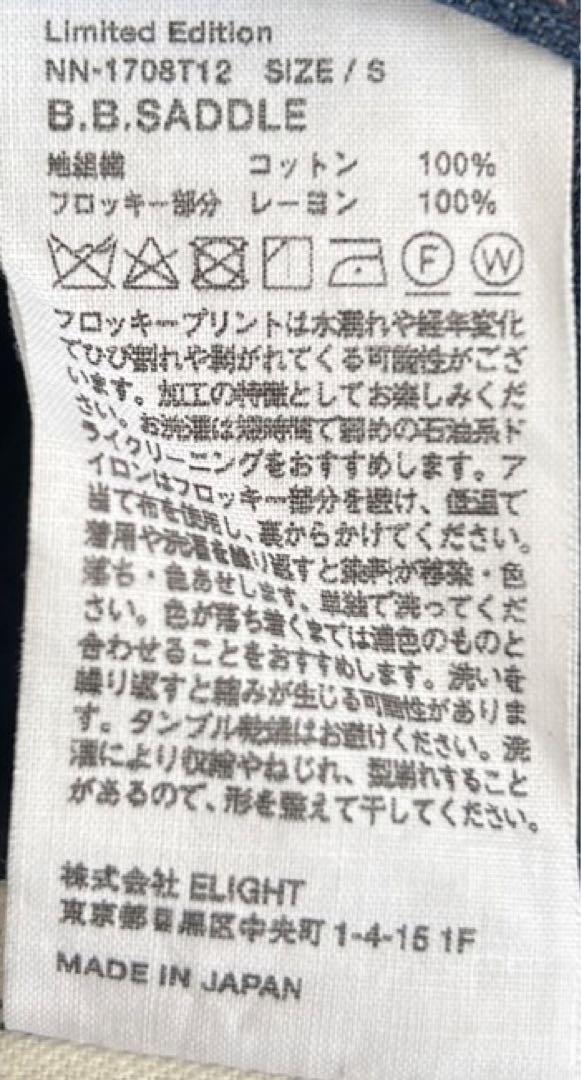 Limited Edition
NN-1708T12 SIZE / S
B.B.SADDLE
地組織 コットン 100%
フロッキー部分 レーヨン 100%
F W
フロッキープリントは水濡れや経年変化
でひび割れや剥がれてくる可能性がござ
います。加工の特徴としてお楽しみくだ
さい。お洗濯は短時間で弱めの石油系ド
ライクリーニングをおすすめします。ア
イロンはフロッキー部分を避け、低温で
当て布を使用し、裏からかけてください。
着用や洗濯を繰り返すと染料が移染・色
落ち・色あせします。単独で洗ってくだ
さい。色が落ち着くまでは濃色のものと
合わせることをおすすめします。洗いを
繰り返すと縮みが生じる可能性がありま
す。タンブル乾燥はお避けください。洗
濯により収縮やねじれ、型崩れすること
があるので、形を整えて干してください。
株式会社 ELIGHT
東京都目黒区中央町 1-4-15 1F
MADE IN JAPAN